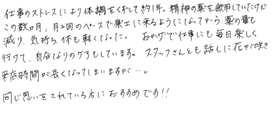 仕事のストレスにより体調をくずして約1年。精神の薬を飲用していたけど
この数ヶ月、月2回のペースで楽士に来るようになってから薬の量も
減り、気持ち、体も軽くなった。おかげで仕事にも毎日楽しく
行けて、自分なりのケアもしています。スタッフさんとも話しに花が咲き
来店時間が長くなってしまいますが…。
同じ思いをされている方におすすめです!!